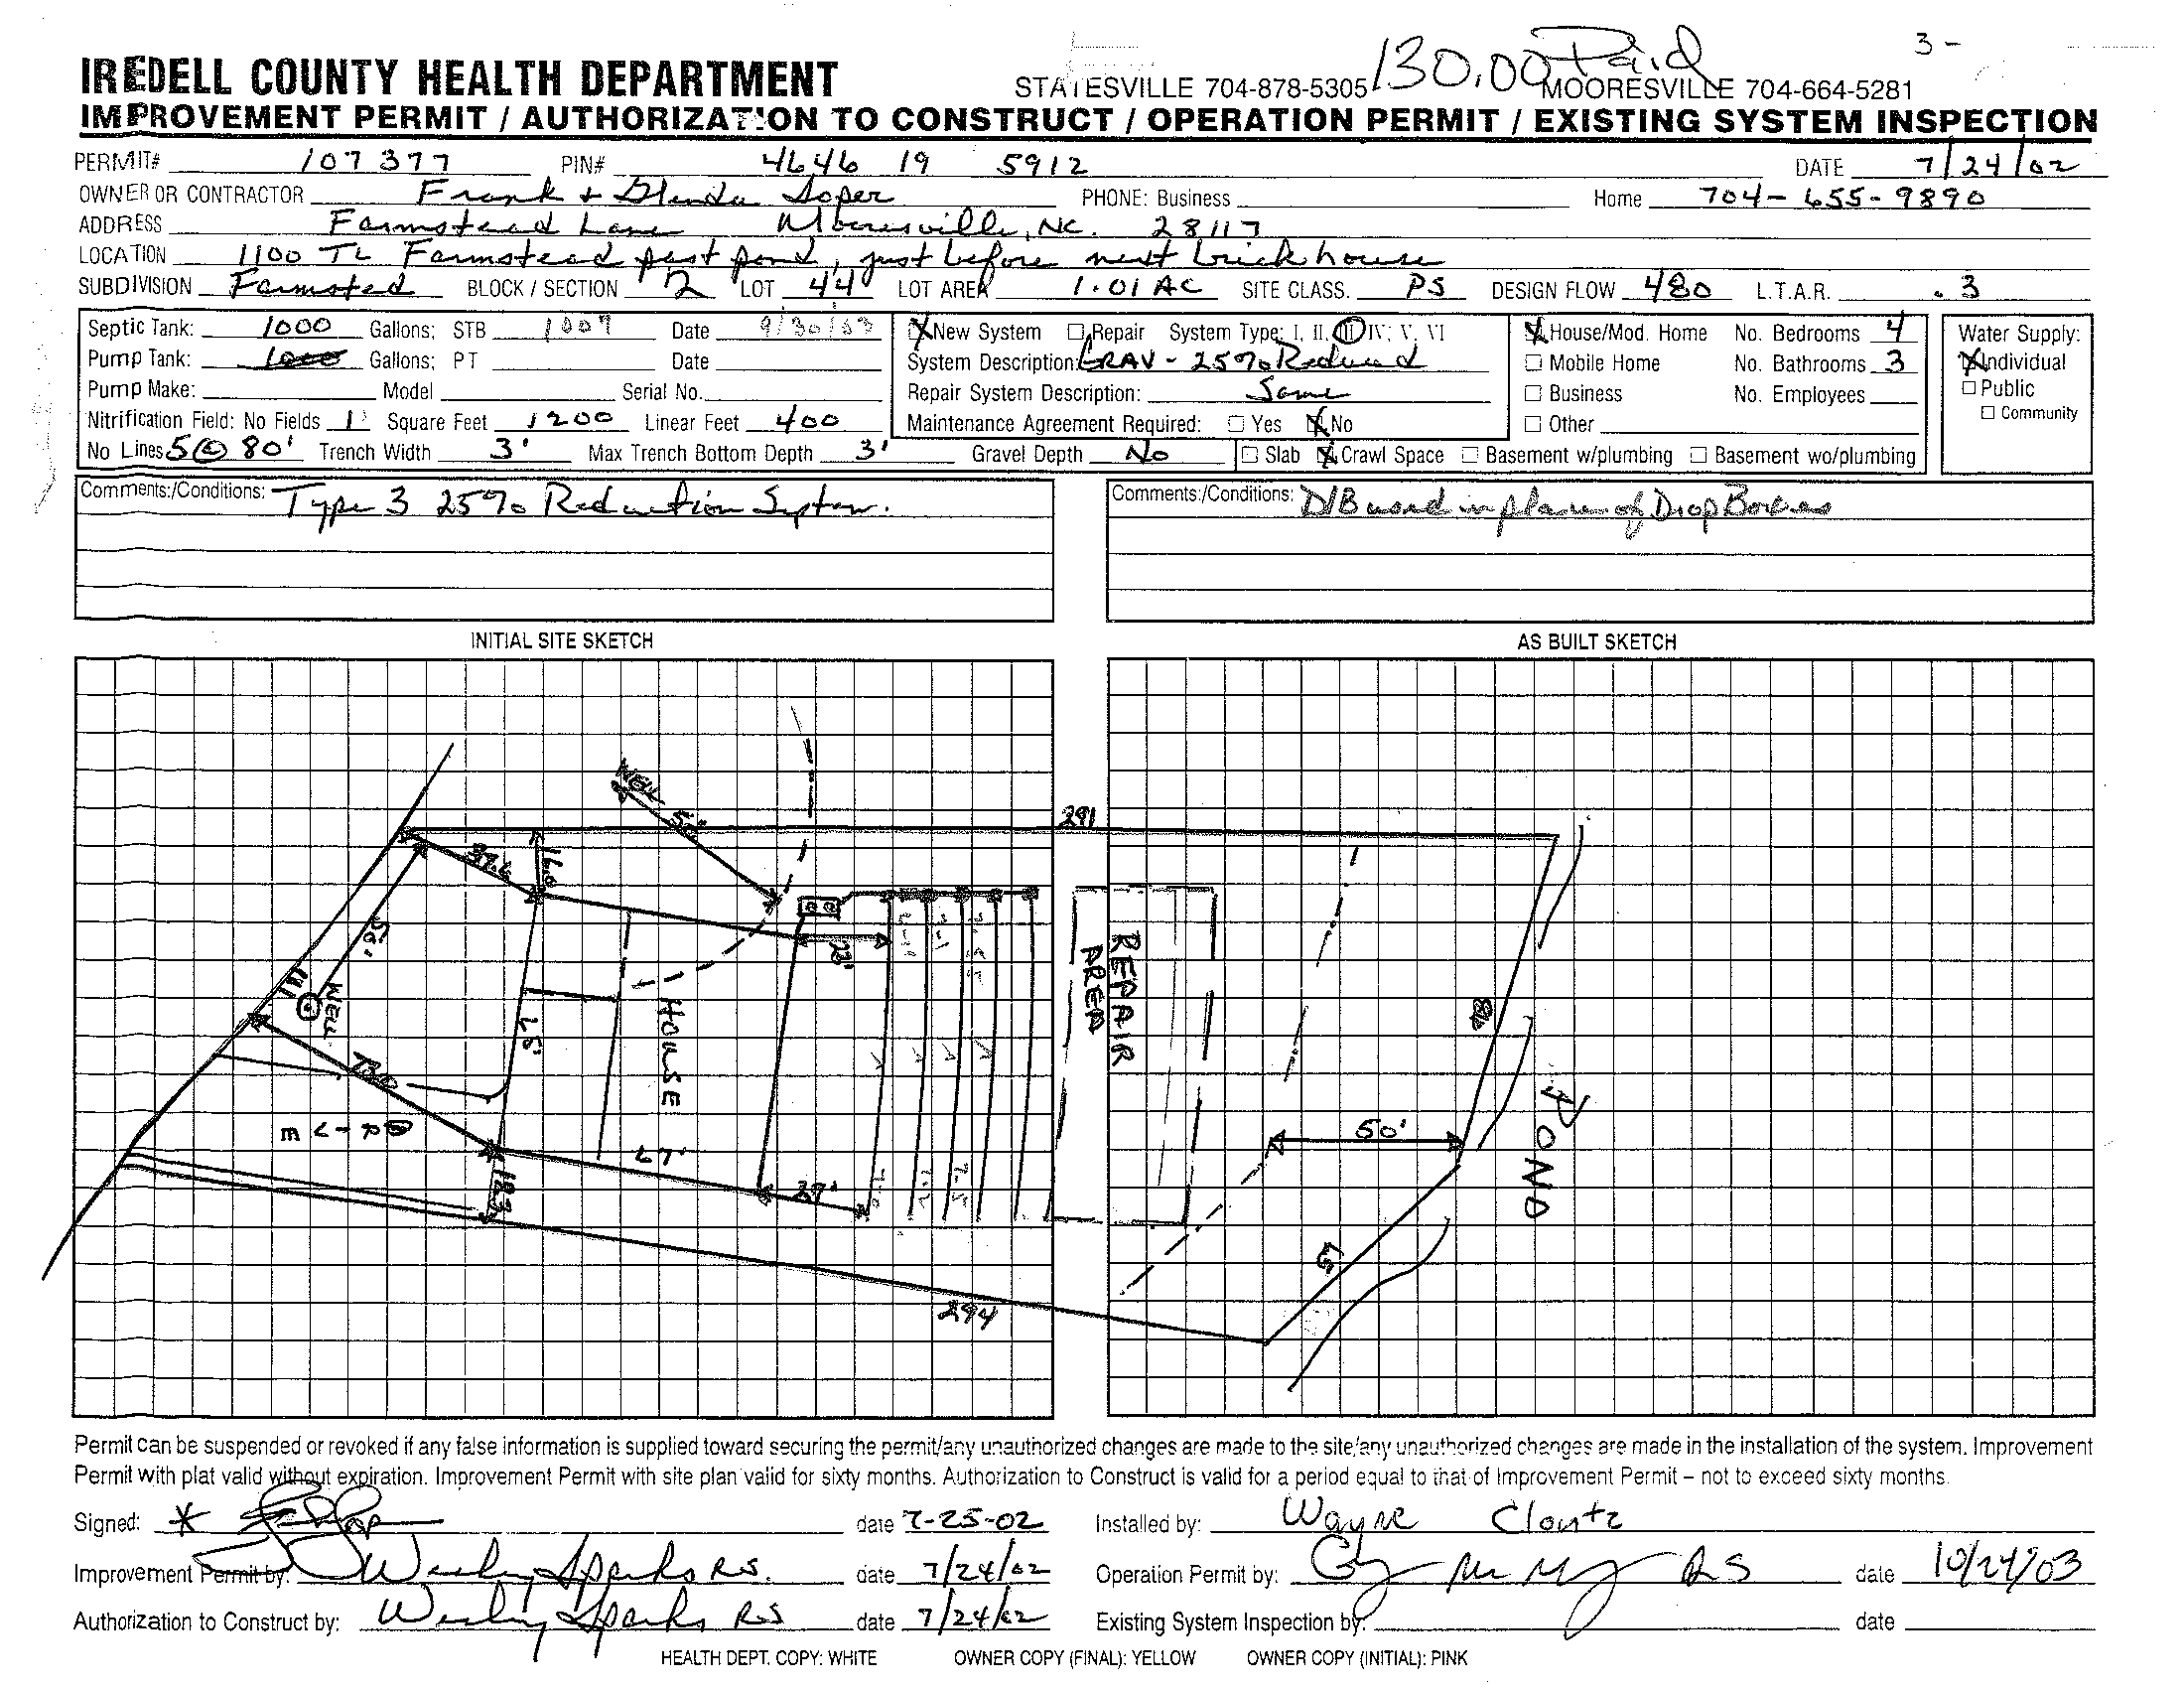 130.00 Paid 3 -
IREDELL COUNTY HEALTH DEPARTMENT STATESVILLE 704-878-5305 MOORESVILLE 704-664-5281
IMPROVEMENT PERMIT / AUTHORIZATION TO CONSTRUCT / OPERATION PERMIT / EXISTING SYSTEM INSPECTION
PERMIT# 107377 PIN# 4646 19 5912 DATE 7/24/02
OWNER OR CONTRACTOR Frank + Glenda Soper PHONE: Business Home 704-655-9890
ADDRESS Farmstead Lane Mooresville, NC. 28117
LOCATION 1100 TL Farmstead past pond, just before next brick house
SUBDIVISION Farmsted BLOCK / SECTION 2 LOT 44 LOT AREA 1.01 AC SITE CLASS. PS DESIGN FLOW 480 L.T.A.R. .3
Septic Tank: 1000 Gallons; STB 1007 Date 9/30/03 New System Repair System Type; I, II, III, IV; V, VI House/Mod. Home No. Bedrooms 4 Water Supply:
Pump Tank: 1000 Gallons; PT Date System Description: GRAV - 25% Reduced Mobile Home No. Bathrooms 3 Individual
Pump Make: Model Serial No. Repair System Description: Same Business No. Employees Public
Nitrification Field: No Fields 1 Square Feet 1200 Linear Feet 400 Maintenance Agreement Required: Yes No Other Community
No Lines 5 @ 80' Trench Width 3' Max Trench Bottom Depth 3' Gravel Depth No Slab Crawl Space Basement w/plumbing Basement wo/plumbing
Comments:/Conditions: Type 3 25% Reduction System.
Comments:/Conditions: D/B used in place of Drop Boxes
INITIAL SITE SKETCH AS BUILT SKETCH
WELL
50'
291
37.6
16.0
50'
23'
WELL
HOUSE
REPAIR AREA
73.0
68'
86
50'
POND
67'
18.3
39'
65
294
Permit can be suspended or revoked if any false information is supplied toward securing the permit/any unauthorized changes are made to the site/any unauthorized changes are made in the installation of the system. Improvement
Permit with plat valid without expiration. Improvement Permit with site plan valid for sixty months. Authorization to Construct is valid for a period equal to that of Improvement Permit – not to exceed sixty months.
Signed: * date 7-25-02 Installed by: Wayne Cloutz
Improvement Permit by: Wesley Sparks R.S. date 7/24/02 Operation Permit by: RS date 10/24/03
Authorization to Construct by: Wesley Sparks RS date 7/24/02 Existing System Inspection by: date
HEALTH DEPT. COPY: WHITE OWNER COPY (FINAL): YELLOW OWNER COPY (INITIAL): PINK